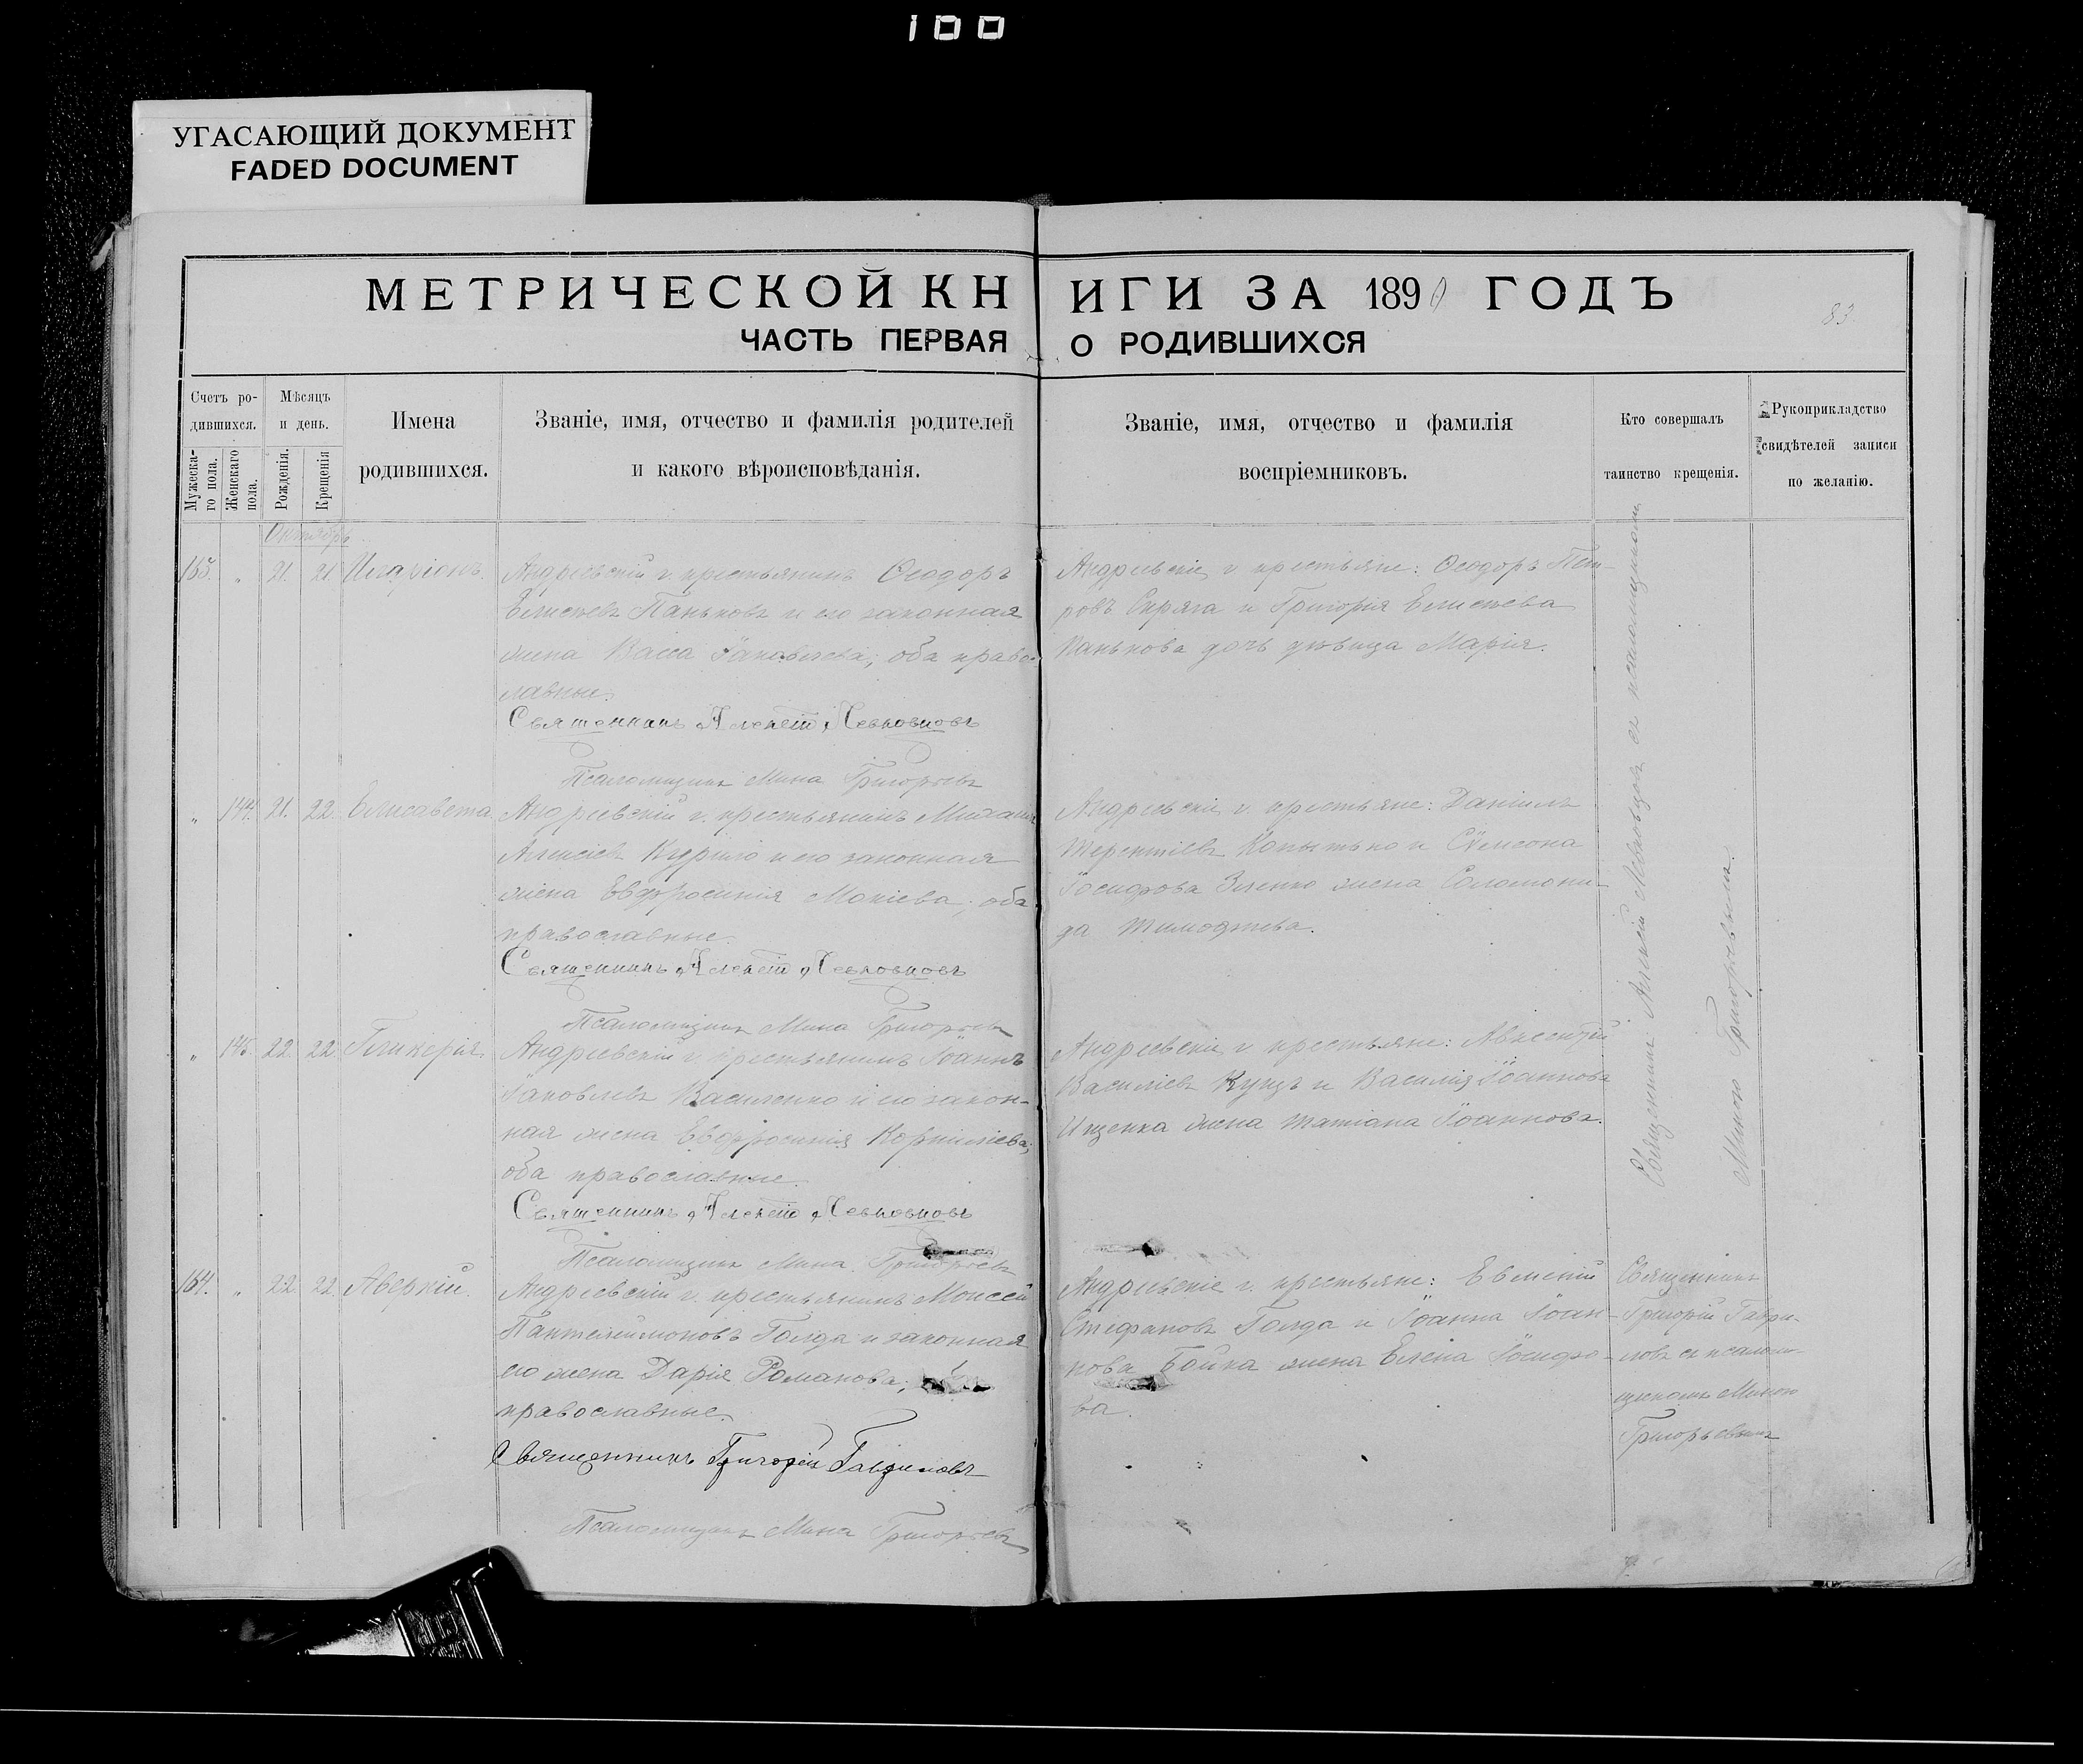 100
УГАСАЮЩИЙ ДОКУМЕНТ
FADED DOCUMENT
МЕТРИЧЕСКОЙ КНИГИ ЗА 1890 ГОДЪ
83
ЧАСТЬ ПЕРВАЯ О РОДИВШИХСЯ
Счетъ ро-
дившихся.
Мужеска-
го пола.
Женскаго
пола.
Мѣсяцъ
и день.
Рожденія.
Крещенія
Имена
родившихся.
Званіе, имя, отчество и фамилія родителей
и какого вѣроисповѣданія.
Званіе, имя, отчество и фамилія
воспріемниковъ.
Кто совершалъ
таинство крещенія.
Рукоприкладство
свидѣтелей записи
по желанію.
Октябрь
163. „ 21. 21. Иларіонъ.
Андреевскій г. крестьянинъ Ѳеодоръ
Елисѣевъ Паньковъ и его законная
жена Васса Іаковлева; оба право-
славные.
Священникъ Алексій Левковцовъ
Псаломщикъ Мина Григорьевъ
Андреевскіе г. крестьяне: Ѳеодоръ Пет-
ровъ Скряга и Григорія Елисѣева
Панькова дочь дѣвица Марія.
„ 144. 21. 22. Елисавета
Андреевскій г. крестьянинъ Михаилъ
Алексіевъ и его законная
жена Евфросинія Мокіева; оба
православные.
Священникъ Алексій Левковцовъ
Псаломщикъ Мина Григорьевъ
Андреевскіе г. крестьяне: Даніилъ
Терентіевъ Копытько и Сѵмеона
Іосифова Зленко жена Соломони-
да Тимофѣева.
„ 145. 22. 22. Гликерія.
Андреевскій г. крестьянинъ Іоаннъ
Іаковлевъ Василенко и его закон-
ная жена Евфросинія Корниліева;
оба православные.
Священникъ Алексій Левковцовъ
Псаломщикъ Мина Григорьевъ
Андреевскіе г. крестьяне: Авксентій
Василіевъ Куцъ и Василія Іоаннова
Ищенка жена Татіана Іоаннова.
Священникъ Алексій Левковцовъ съ псаломщикомъ
Миною Григорьевымъ.
164. „ 22. 22. Аверкій.
Андреевскій г. крестьянинъ Моисей
Пантелеимоновъ Голда и законная
его жена Дарія Романова; оба
православные.
Священникъ Григорій Гавриловъ
Псаломщикъ Мина Григорьевъ
Андреевскіе г. крестьяне: Евменій
Стефановъ Голда и Іоанна Іоан-
нова Бойка жена Елена Іосифо-
ва.
Священникъ
Григорій Гаври-
ловъ съ псалом-
щикомъ Миною
Григорьевымъ